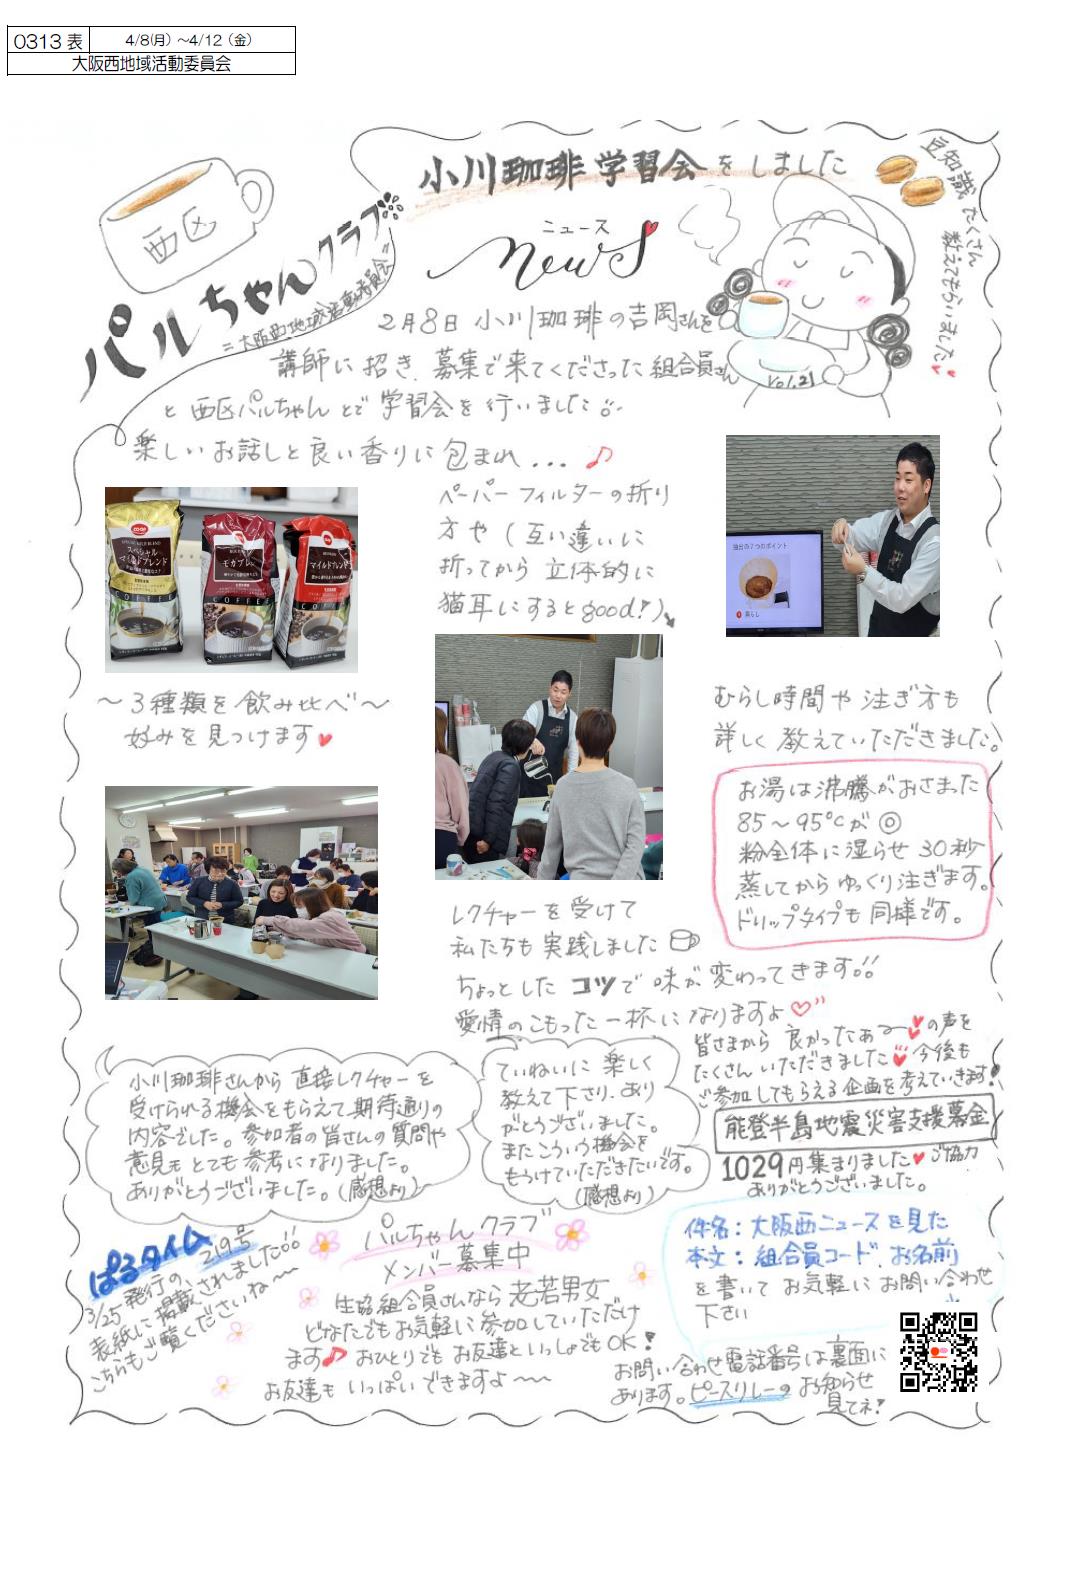 0313 表
4/8(月) ～4/12 (金)
大阪西地域活動委員会
小川珈琲 学習会をしました
豆知識たくさん
教えてもらいました
西区
ニュース
news
パルちゃんクラブ
=大阪西地域活動委員会=
Vol.21
2月8日 小川珈琲の吉岡さんを
講師に招き、募集で来てくださった組合員さん
と 西区パルちゃんとで 学習会を行いました
楽しいお話しと良い香りに包まれ...♪
ペーパーフィルターの折り
方や(互い違いに
折ってから 立体的に
猫耳にするとgood!)
COOP
スペシャル
マイルドブレンド
COFFEE
モカブレンド
COFFEE
マイルドブレンド
COFFEE
抽出の7つのポイント
蒸らし
～3種類を飲み比べ～
好みを見つけます♥
むらし時間や注ぎ方も
詳しく教えていただきました。
お湯は沸騰がおさまった
85～95℃が◎
粉全体に湿らせ 30秒
蒸してからゆっくり注ぎます。
ドリップタイプも同様です。
レクチャーを受けて
私たちも実践しました
ちょっとしたコツで味が変わってきます!!
愛情のこもった一杯になりますよ♡
皆さまから 良かったぁ～♥の声を
たくさんいただきました♥今後も
ご参加してもらえる企画を考えていきます!
小川珈琲さんから 直接レクチャーを
受けられる機会をもらえて期待通りの
内容でした。参加者の皆さんの質問や
意見も とても参考になりました。
ありがとうございました。(感想より)
ていねいに 楽しく
教えて下さり、あり
がとうございました。
またこういう機会を
もうけていただきたいです。
(感想より)
能登半島地震災害支援募金
1029円集まりました♥ご協力
ありがとうございました。
ぱるタイム 219号
3/25発行の、
表紙に掲載されました!!
こちらもご覧くださいね～
パルちゃんクラブ
メンバー募集中
生協組合員さんなら 老若男女
どなたでもお気軽に参加していただけ
ます♪ おひとりでもお友達といっしょでもOK!
お友達もいっぱいできますよ～
件名:大阪西ニュースを見た
本文:組合員コード、お名前
を書いて お気軽に お問い合わせ
下さい
お問い合わせ電話番号は裏面に
あります。ピースリレーのお知らせ
見てネ!